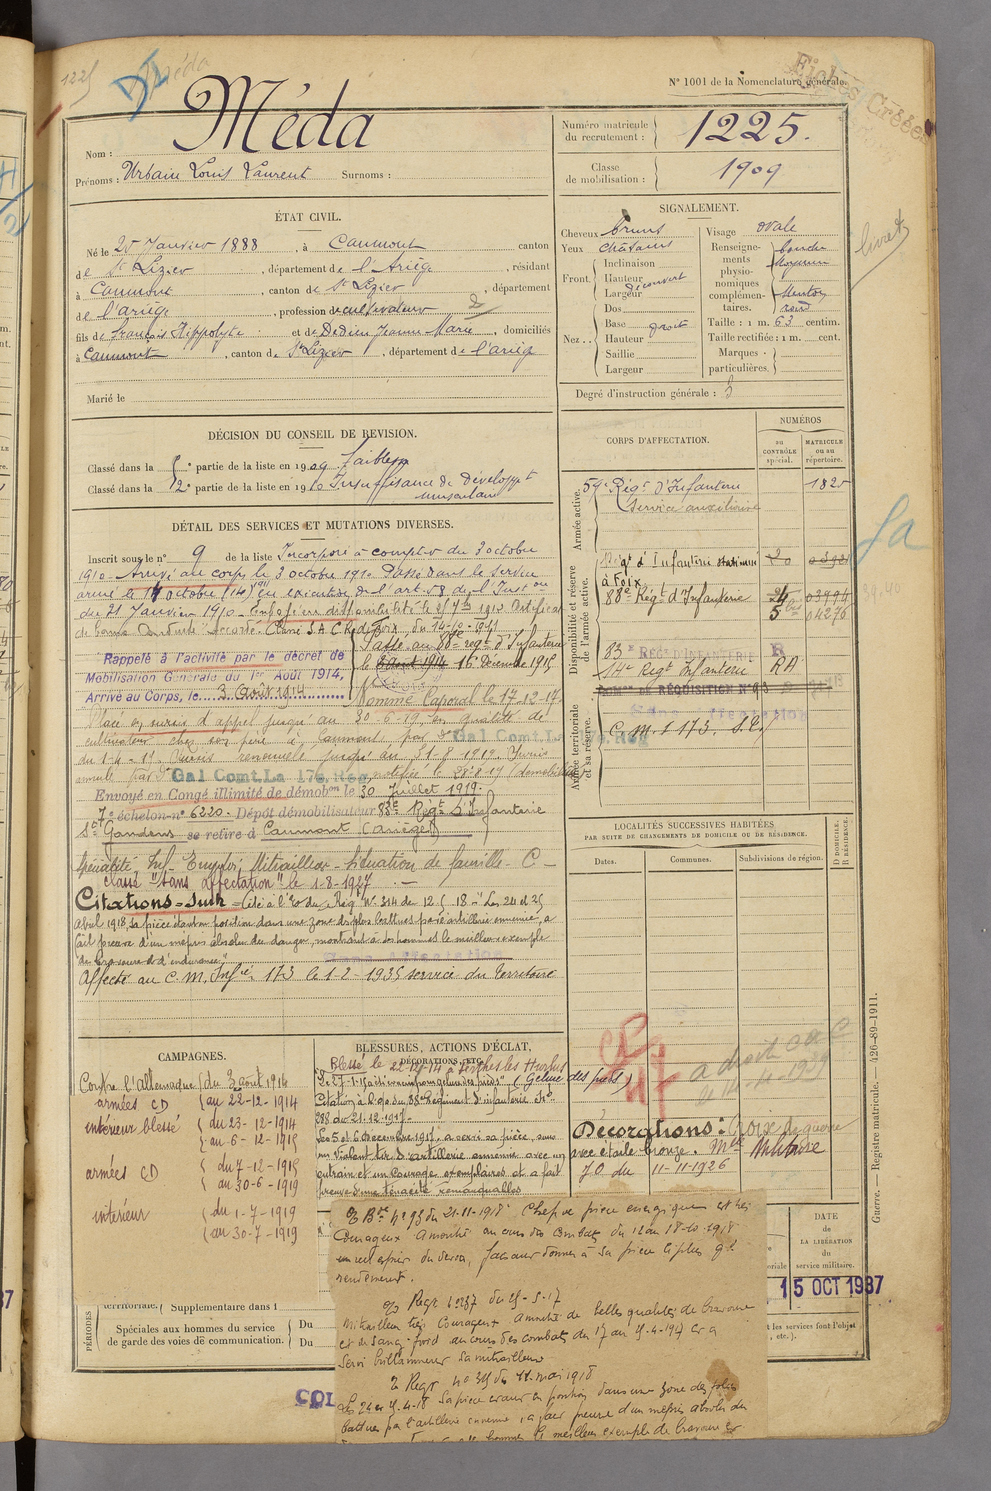 1225
Méda
N° 1001 de la Nomenclature générale.
Méda
Nom :
Prénoms : Urbain Louis Laurent Surnoms :
Numéro matricule du recrutement : 1225.
Classe de mobilisation : 1909
ÉTAT CIVIL.
Né le 25 Janvier 1888, à Caumont canton
de St Lizier, département de l'Ariège, résidant
à Caumont, canton de St Lizier, département
de l'ariège, profession de cultivateur
fils de François Hippolyte et de Dedieu Jeanne Marie, domiciliés
à Caumont, canton de St Lizier, département de l'ariège
Marié le
SIGNALEMENT.
Cheveux bruns
Yeux châtains
Front Inclinaison
Hauteur découvert
Largeur
Nez Dos
Base droite
Hauteur
Saillie
Largeur
Visage ovale
Renseignements physionomiques complémentaires. bouche moyenne
Menton rond
Taille : 1 m. 63 centim.
Taille rectifiée : 1 m. cent.
Marques particulières.
Degré d'instruction générale : 3
livret
DÉCISION DU CONSEIL DE REVISION.
Classé dans la 5e partie de la liste en 1909 faiblesse
Classé dans la 2e partie de la liste en 1910 Insuffisance de Développt
musculaire
DÉTAIL DES SERVICES ET MUTATIONS DIVERSES.
Inscrit sous le n° 9 de la liste Incorporé à compter du 3 octobre
1910. Arrivé au corps le 3 octobre 1910. Passé dans le service
armé le 14 octobre (14) en exécution de l'art. 58 de l'Instron
du 21 Janvier 1910. Envoyé en disponibilité le 25 7bre 1912. Certificat
de bonne Conduite "accordé".
Passé au 88e regt d'Infanterie
le 16 Décembre 1915
Rappelé à l'activité par le décret de
Mobilisation Générale du 1er Août 1914,
Arrivé au Corps, le 3 Août 1914
Nommé Caporal le 17-12-17.
Placé en sursis d'appel jusqu'au 30-6-19, en qualité de
cultivateur chez son père à Caumont par Dn Gal Comt. La 17e Reg
du 1-4-19. Sursis renouvelé jusqu'au 31-8-1919. Sursis
annulé par Dn Gal Comt. La 17e Reg, notifiée le 28-8-19 (démobilisé)
Envoyé en Congé illimité de démobon le 30 Juillet 1919.
7e échelon n° 6220. Dépôt démobilisateur 83e Régt d'Infanterie
St Gaudens se retire à Caumont (ariège)
Spécialité Inf. Emploi, Mitrailleur - Situation de famille - C -
Classé "sans affectation" le 1-8-1927
Citations = Suite = Cité à l'ordre du Régt N° 314 du 12 5 18 "Les 24 et 25
Avril 1918, sa pièce étant en position dans une zone des plus battues par l'artillerie ennemie, a
fait preuve d'un mépris absolu du danger, montrant à ses hommes le meilleur exemple
de bravoure et d'endurance"
Sans Affectation
Affecté au C. M. Infie 173 le 1-2-1935 service du Territoire
CORPS D'AFFECTATION.
NUMÉROS
au CONTRÔLE spécial.
MATRICULE ou au RÉPERTOIRE.
Armée active.
59e Régt d'Infanterie 1825
(Service auxiliaire
Disponibilité et réserve de l'armée active.
Régt d'Infanterie stationné
à Foix
88e Régt d'Infanterie 03994
5 04276
83e REGt D'INFANTERIE R
14e Regt Infanterie RA
Armée territoriale et sa réserve.
Sans Affectation
C.M.I 173. S.T.
LOCALITÉS SUCCESSIVES HABITÉES
PAR SUITE DE CHANGEMENTS DE DOMICILE OU DE RÉSIDENCE.
Dates. Communes. Subdivisions de région. D DOMICILE. R RÉSIDENCE
a droit à C C
CAMPAGNES.
Contre l'Allemagne (du 3 août 1914
armées CD (au 22-12-1914
intérieur blessé (du 23-12-1914
(au 6-12-1915
armées CD (du 7-12-1915
(au 30-6-1919
intérieur (du 1-7-1919
(au 30-7-1919
BLESSURES, ACTIONS D'ÉCLAT,
DÉCORATIONS, ETC.
Blessé le 22-12-14 à Perthes les Hurlus
(Gelure des pieds)
Citation à l'ordre du 88e Régiment d'infanterie N°
288 du 21-12-1917.
Les 5 et 6 décembre 1915, a servi sa pièce, sous
un violent tir d'artillerie ennemie avec un
entrain et un Courage exemplaires et a fait
preuve d'une ténacité remarquables
Décorations : Croix de guerre
avec étoile bronze. Mlle Militaire
J.O. du 11-11-1926
O Bde N° 95 du 21-11-1918 Chef de pièce énergique et très
Courageux. A montré au cours des combats du 12 au 18-10-1918
un bel esprit du devoir, faisant donner à sa pièce le plus gd
rendement.
O Regt N° 237 du 25-5-17
Mitrailleur très Courageux. A montré de belles qualités de bravoure
et de sang-froid au cours des combats du 17 au 25-4-1917 et a
servi brillamment sa mitrailleuse
O Regt N° 315 du 11 mai 1918
Les 24 et 25-4-18 Sa pièce étant en position dans une zone des plus
battues par l'artillerie ennemie, a fait preuve d'un mépris absolu du
le meilleur exemple de bravoure et
DATE DE LA LIBÉRATION du service militaire.
15 OCT 1937
PÉRIODES
territoriale. Supplémentaire dans l
Spéciales aux hommes du service
de garde des voies de communication.
Du
Du
Guerre. — Registre matricule. — 426-89-1911.